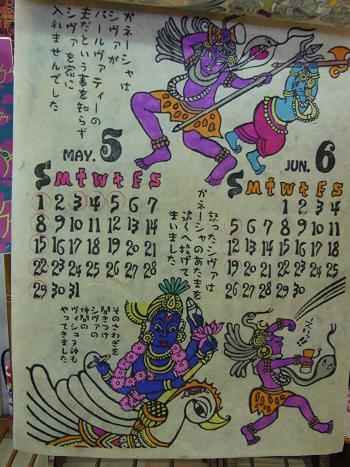 ガネーシャは
シヴァが
パールヴァティーの
夫だという事を知らず
シヴァを家に
入れませんでした
MAY. 5
S M T W T F S
1 2 3 4 5 6 7
8 9 10 11 12 13 14
15 16 17 18 19 20 21
22 23 24 25 26 27 28
29 30 31
怒ったシヴァは
ガネーシャのあたまを
遠くへ投げて
しまいました
JUN. 6
S M T W T F S
1 2 3 4
5 6 7 8 9 10 11
12 13 14 15 16 17 18
19 20 21 22 23 24 25
26 27 28 29 30
そのさわぎを
聞きつけ
シヴァの
仲間の
ヴィシュヌ神も
やってきました